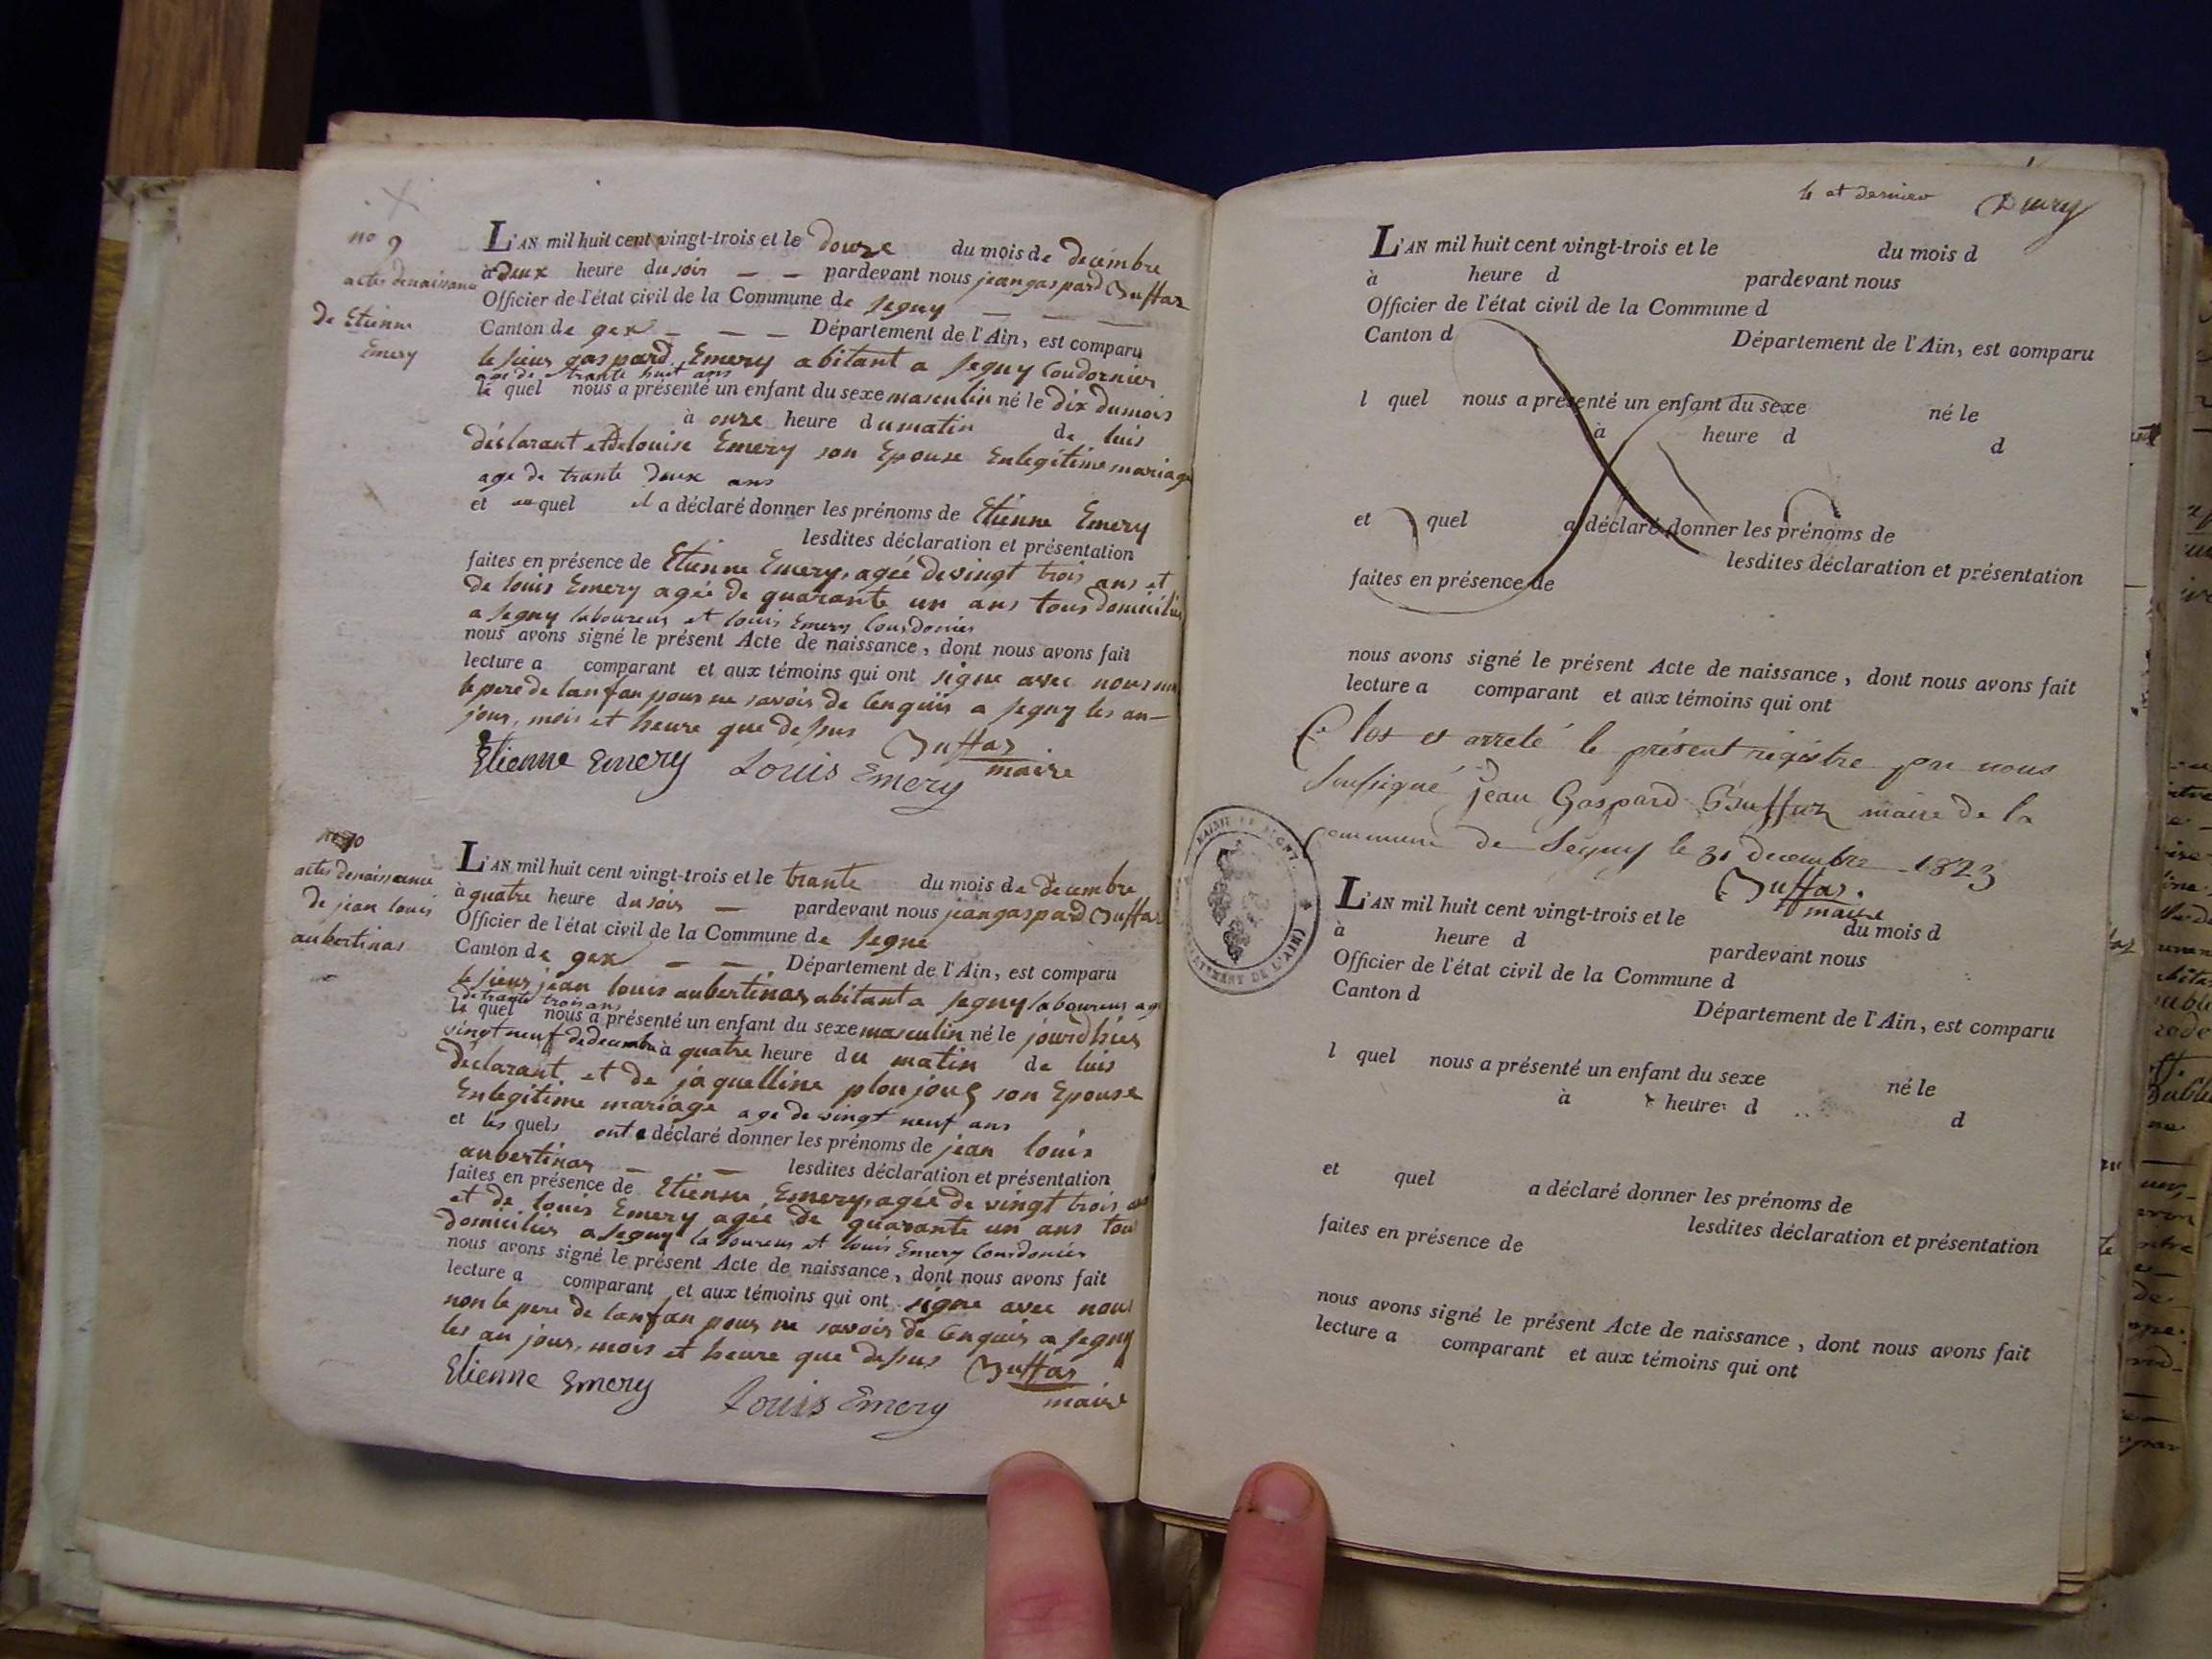 no 9
actes de naissance
de Etienne
Emery
L'AN mil huit cent vingt-trois et le douze du mois de decembre
à deux heure du soir — — pardevant nous jean gaspard Buffaz
Officier de l'état civil de la Commune de segny — — —
Canton de gex — — — Département de l'Ain, est comparu
le sieur gaspard Emery abitant a segny Coudornier
age de trante huit ans
le quel nous a présenté un enfant du sexe masculin né le dix du mois
à onze heure du matin de luis
déclarant et de louise Emery son Epouse En legitime mariage
age de trante deux ans
et au quel il a déclaré donner les prénoms de Etienne Emery
lesdites déclaration et présentation
faites en présence de Etienne Emery, agée de vingt trois ans et
de louis Emery agée de quarante un ans tous domicilies
a segny laboureur et louis Emery Cousdonier
nous avons signé le présent Acte de naissance, dont nous avons fait
lecture a comparant et aux témoins qui ont signe avec nous non
le pere de lanfan pour ne savoir de Cenquis a segny les an —
jour, mois et heure que dessus Buffaz
maire
Etienne Emery Louis Emery
no 10
actes de naissance
de jean louis
aubertinas
L'AN mil huit cent vingt-trois et le trante du mois de decembre
à quatre heure du soir — pardevant nous jean gaspard Buffaz
Officier de l'état civil de la Commune de segne
Canton de gex — — Département de l'Ain, est comparu
le sieur jean louis aubertinas abitant a segny laboureur age
de trante trois ans
le quel nous a présenté un enfant du sexe masculin né le jourdhier
vingt neuf de decembre à quatre heure du matin de luis
déclarant et de jaquelline ploujoug son Epouse
En legitime mariage age de vingt neuf ans
et les quels ont a déclaré donner les prénoms de jean louis
aubertinas — — lesdites déclaration et présentation
faites en présence de Etienne Emery, agée de vingt trois ans
et de louis Emery agée de quarante un ans tou
domicilies a segny laboureur et louis Emery Cousdonier
nous avons signé le présent Acte de naissance, dont nous avons fait
lecture a comparant et aux témoins qui ont signe avec nous
non le pere de lanfan pour ne savoir de Cenquis a segny
les an jour, mois et heure que dessus Buffaz
maire
Etienne Emery Louis Emery
4 et dernier
L'AN mil huit cent vingt-trois et le du mois d
à heure d pardevant nous
Officier de l'état civil de la Commune d
Canton d Département de l'Ain, est comparu
l quel nous a présenté un enfant du sexe né le
à heure d d
et quel a déclaré donner les prénoms de
lesdites déclaration et présentation
faites en présence de
nous avons signé le présent Acte de naissance, dont nous avons fait
lecture a comparant et aux témoins qui ont
Clos et arreté le présent régistre par nous
soussigné jean Gaspard Buffaz maire de la
Commune de Segny le 31 decembre 1823
Buffaz.
maire
L'AN mil huit cent vingt-trois et le du mois d
à heure d pardevant nous
Officier de l'état civil de la Commune d
Canton d Département de l'Ain, est comparu
l quel nous a présenté un enfant du sexe né le
à heure d d
et quel a déclaré donner les prénoms de
lesdites déclaration et présentation
faites en présence de
nous avons signé le présent Acte de naissance, dont nous avons fait
lecture a comparant et aux témoins qui ont